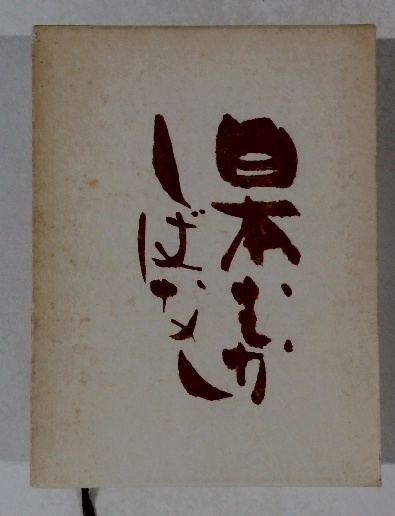 日本むか
しばなし